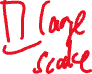 Large
scale